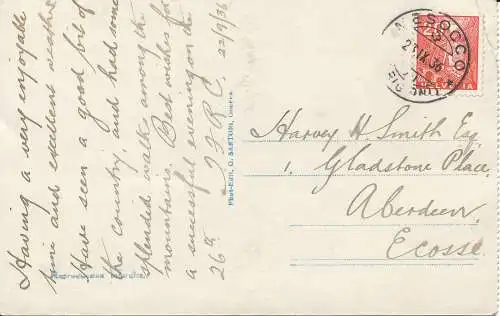 Having a very enjoyable
time and excellent weather
Have seen a good bit of
the country, and had some
splendid walks among the
mountains. Best wishes for
a successful evening on the
26th
22/9/36
Phot-Edit. C. SARTORI, Genève
Reproduction interdite
MESOCCO
21.IX.36
HELVETIA
Harvey H Smith Esq.
1, Gladstone Place,
Aberdeen,
Ecosse.